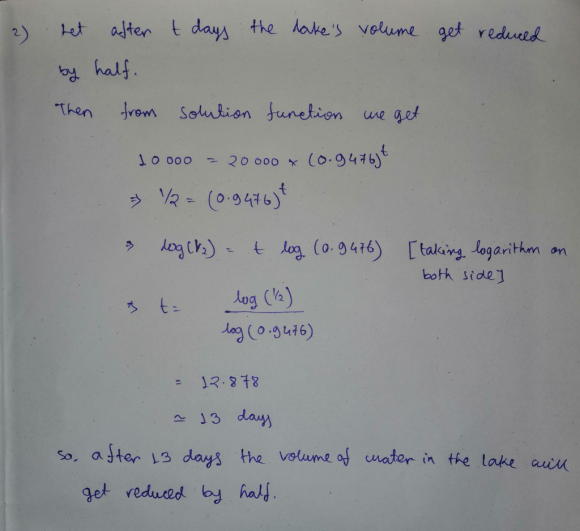 2) Let after t days the lake's volume get reduced
by half.
Then from solution function we get
10 000 = 20 000 × (0.9476)^t
⇒ 1/2 = (0.9476)^t
⇒ log(1/2) = t log (0.9476) [taking logarithm on
both side]
⇒ t = log (1/2) / log (0.9476)
= 12.878
≃ 13 days
So, after 13 days the volume of water in the lake will
get reduced by half.